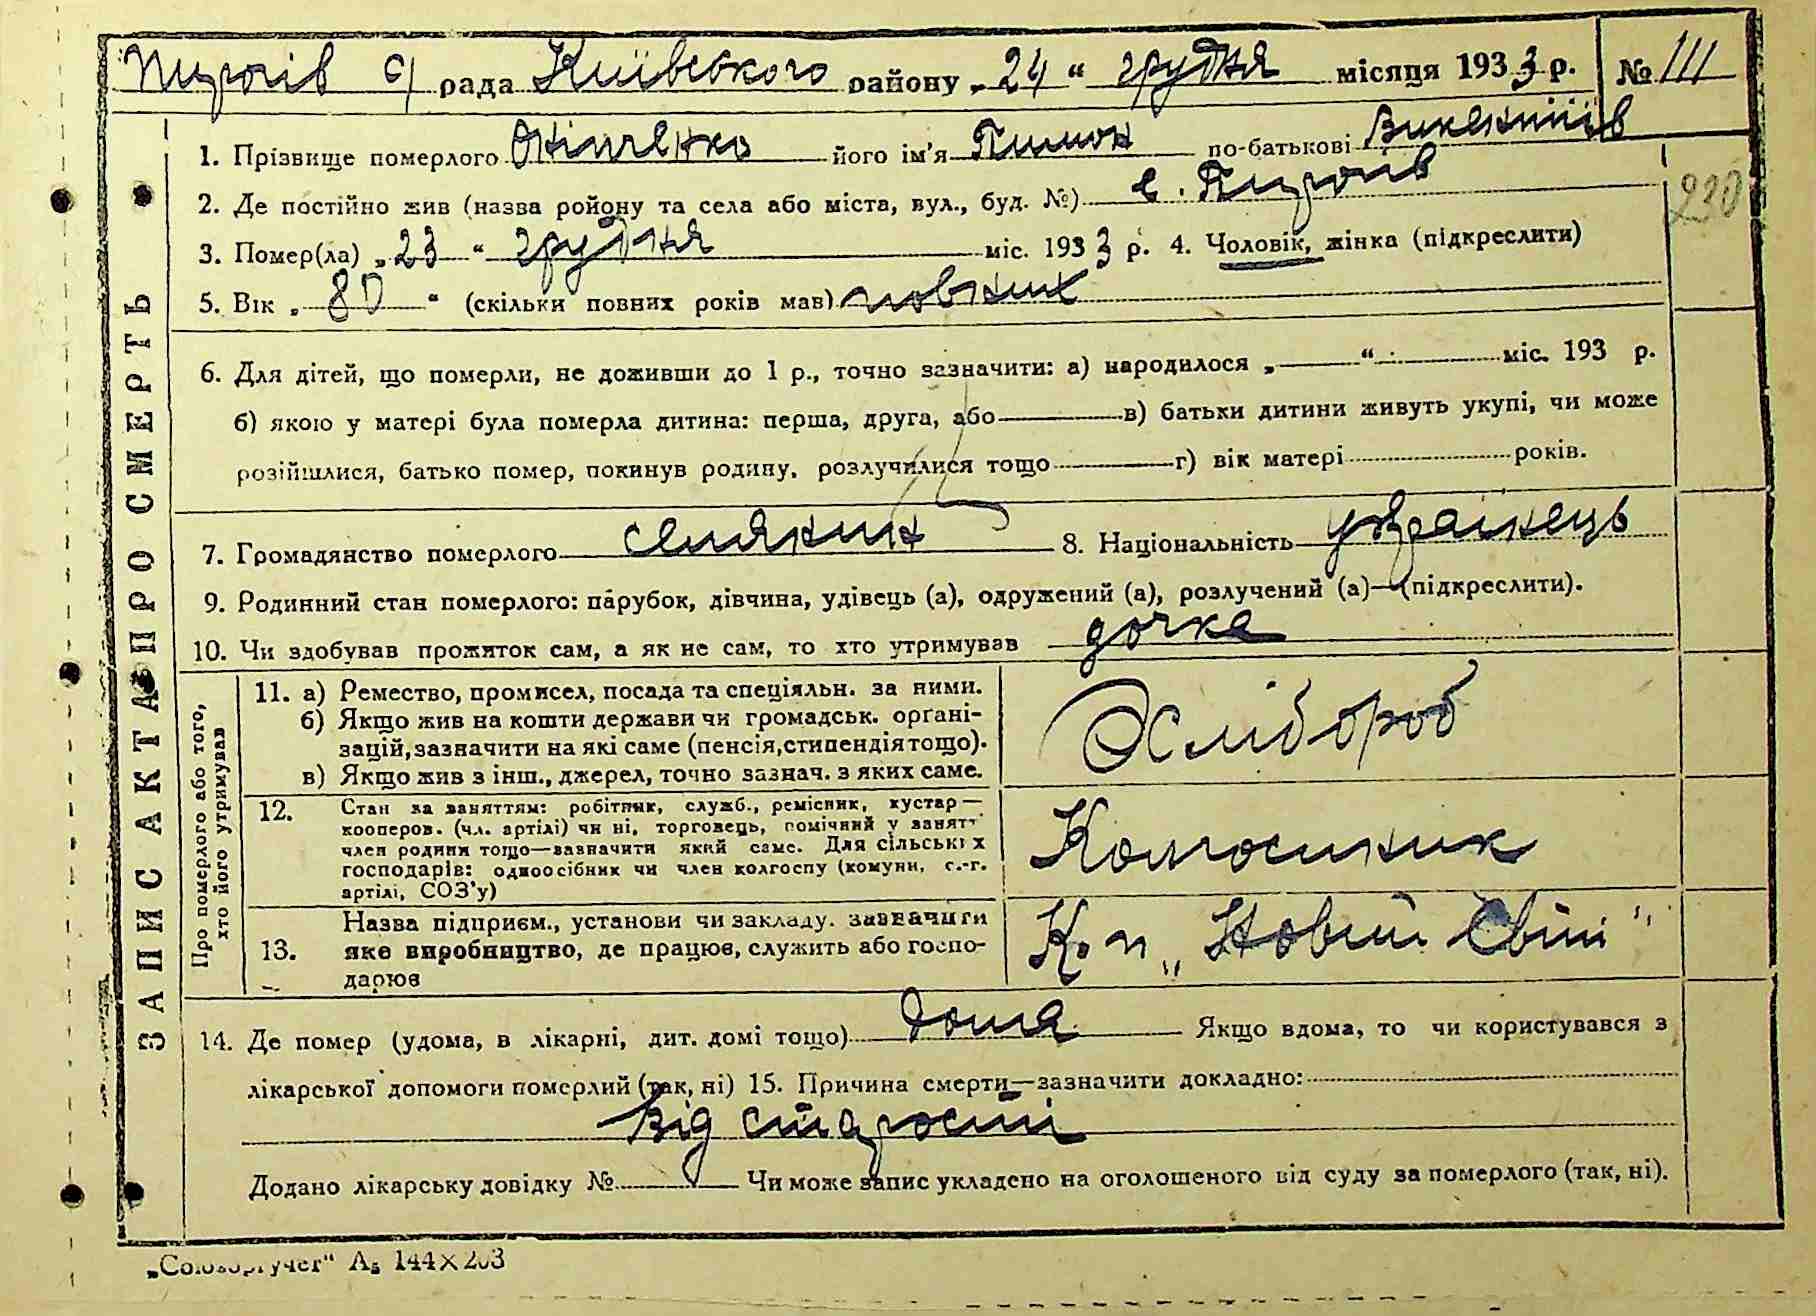 Пирогів С/ рада Київського району „24“ грудня місяця 1933 р. № 111
1. Прізвище померлого Оніпченко його ім'я Пимон по-батькові Викентіїв
2. Де постійно жив (назва ройону та села або міста, вул., буд. №) с. Пирогів
230
3. Помер(ла) „23“ грудня міс. 1933 р. 4. Чоловік, жінка (підкреслити)
5. Вік „80“ (скільки повних років мав) повних
6. Для дітей, що померли, не доживши до 1 р., точно зазначити: а) народилося „ “ міс. 193 р.
б) якою у матері була померла дитина: перша, друга, або в) батьки дитини живуть укупі, чи може
розійшлися, батько помер, покинув родину, розлучилися тощо г) вік матері років.
7. Громадянство померлого селянин 8. Національність українець
9. Родинний стан померлого: парубок, дівчина, удівець (а), одружений (а), розлучений (а)—(підкреслити).
10. Чи здобував прожиток сам, а як не сам, то хто утримував дочка
ЗАПИС АКТА ПРО СМЕРТЬ
Про померлого або того,
хто його утримував
11. а) Ремество, промисел, посада та спеціяльн. за ними.
б) Якщо жив на кошти держави чи громадськ. органі-
зацій, зазначити на які саме (пенсія, стипендія тощо).
в) Якщо жив з інш., джерел, точно зазнач. з яких саме.
Хлібороб
12. Стан за заняттям: робітник, служб., ремісник, кустар—
кооперов. (чл. артілі) чи ні, торговець, помічний у занятт
член родини тощо—зазначити який саме. Для сільських
господарів: одноосібник чи член колгоспу (комуни, с.-г.
артілі, СОЗ'у)
Колгоспник
13. Назва підприєм., установи чи закладу. зазначити
яке виробництво, де працює, служить або госпо-
дарює
К-п „Новий Світ"
14. Де помер (удома, в лікарні, дит. домі тощо) дома Якщо вдома, то чи користувався з
лікарської допомоги померлий (так, ні) 15. Причина смерти—зазначити докладно:
Від старости
Додано лікарську довідку № Чи може запис укладено на оголошеного від суду за померлого (так, ні).
„Союзоргучет" А₅ 144×203